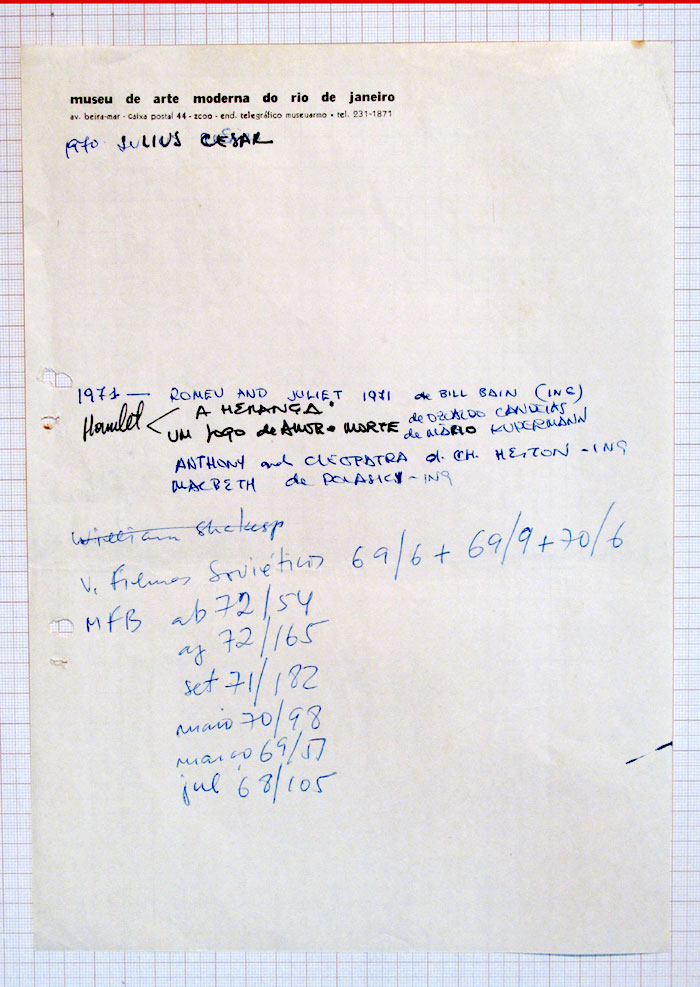 museu de arte moderna do rio de janeiro
av. beira-mar - caixa postal 44 - zc00 - end. telegráfico museuarmo • tel. 231-1871
1970 JULIUS CESAR
1971 — ROMEU AND JULIET 1971 de BILL BAIN (ING)
Hamlet < A HERANÇA. de OZUALDO CANDEIAS
UM Jogo de AMOR e MORTE de MÁRIO KUPERMANN
ANTHONY and CLEOPATRA d. CH. HESTON - ING
MACBETH de POLASKY - ING
William Shakesp
V. Filmes Soviéticos 69/6 + 69/9 + 70/6
MFB ab 72/54
ag 72/165
set 71/182
maio 70/98
março 69/51
jul 68/105